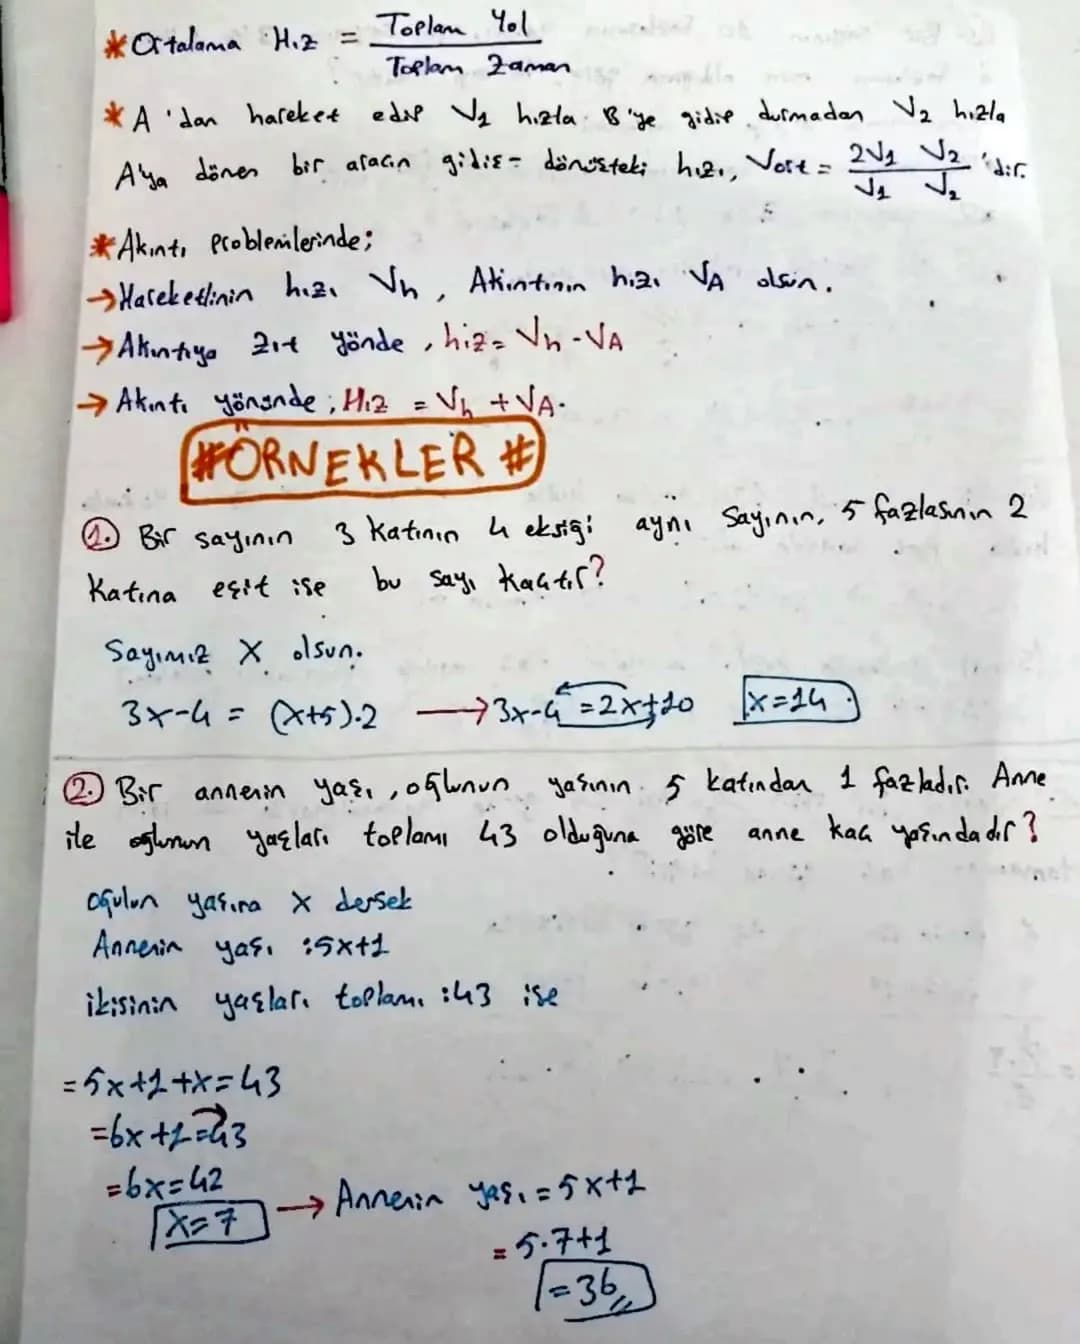 * Ortalama Hız = Toplam Yol / Toplam Zaman
* A'dan hareket edip V1 hızla B'ye gidip durmadan V2 hızla
A'ya dönen bir aracın gidiş-dönüşteki hızı, Vort = 2V1 V2 / V1 V2 'dir.
* Akıntı Problemlerinde;
→ Hareketlinin hızı Vh, Akıntının hızı VA olsun.
→ Akıntıya zıt yönde, hız = Vh - VA
→ Akıntı yönünde; Hız = Vh + VA.
#ÖRNEKLER#
1. Bir sayının 3 katının 4 eksiği aynı sayının, 5 fazlasının 2
katına eşit ise bu sayı kaçtır?
Sayımız X olsun.
3x-4 = (x+5).2 → 3x-4 = 2x+10 x=14
2. Bir annenin yaşı, oğlunun yaşının 5 katından 1 fazladır. Anne
ile oğlunun yaşları toplamı 43 olduğuna göre anne kaç yaşındadır?
oğulun yaşına x dersek
Annenin yaşı :5x+1
ikisinin yaşları toplamı :43 ise
=5x+1+x=43
=6x+1=43
=6x=42
x=7 → Annenin yaşı = 5x+1
= 5.7+1
=36